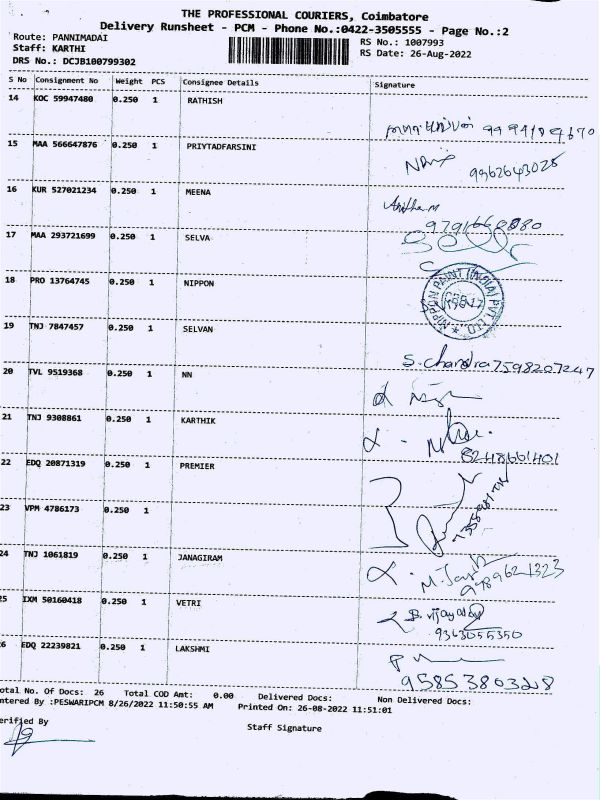 THE PROFESSIONAL COURIERS, Coimbatore
Delivery Runsheet - PCM - Phone No.:0422-3505555 - Page No.:2
Route: PANNIMADAI
Staff: KARTHI
DRS No.: DCJB100799302
RS No.: 1007993
RS Date: 26-Aug-2022
S No Consignment No Weight PCS Consignee Details Signature
14 KOC 59947480 0.250 1 RATHISH
15 MAA 566647876 0.250 1 PRIYTADFARSINI
9962643025
16 KUR 527021234 0.250 1 MEENA
17 MAA 293721699 0.250 1 SELVA
18 PRO 13764745 0.250 1 NIPPON
NIPPON PAINT (INDIA) PVT LTD.
19 TNJ 7847457 0.250 1 SELVAN
S. chandra 7598207247
20 TVL 9519368 0.250 1 NN
21 TNJ 9308861 0.250 1 KARTHIK
8248661401
22 EDQ 20871319 0.250 1 PREMIER
23 VPM 4786173 0.250 1
24 TNJ 1061819 0.250 1 JANAGIRAM
9989621323
25 IXM 50160418 0.250 1 VETRI
9363055350
6 EDQ 22239821 0.250 1 LAKSHMI
9585380328
otal No. Of Docs: 26 Total COD Amt: 0.00 Delivered Docs: Non Delivered Docs:
ntered By :PESWARIPCM 8/26/2022 11:50:55 AM Printed On: 26-08-2022 11:51:01
erified By
Staff Signature